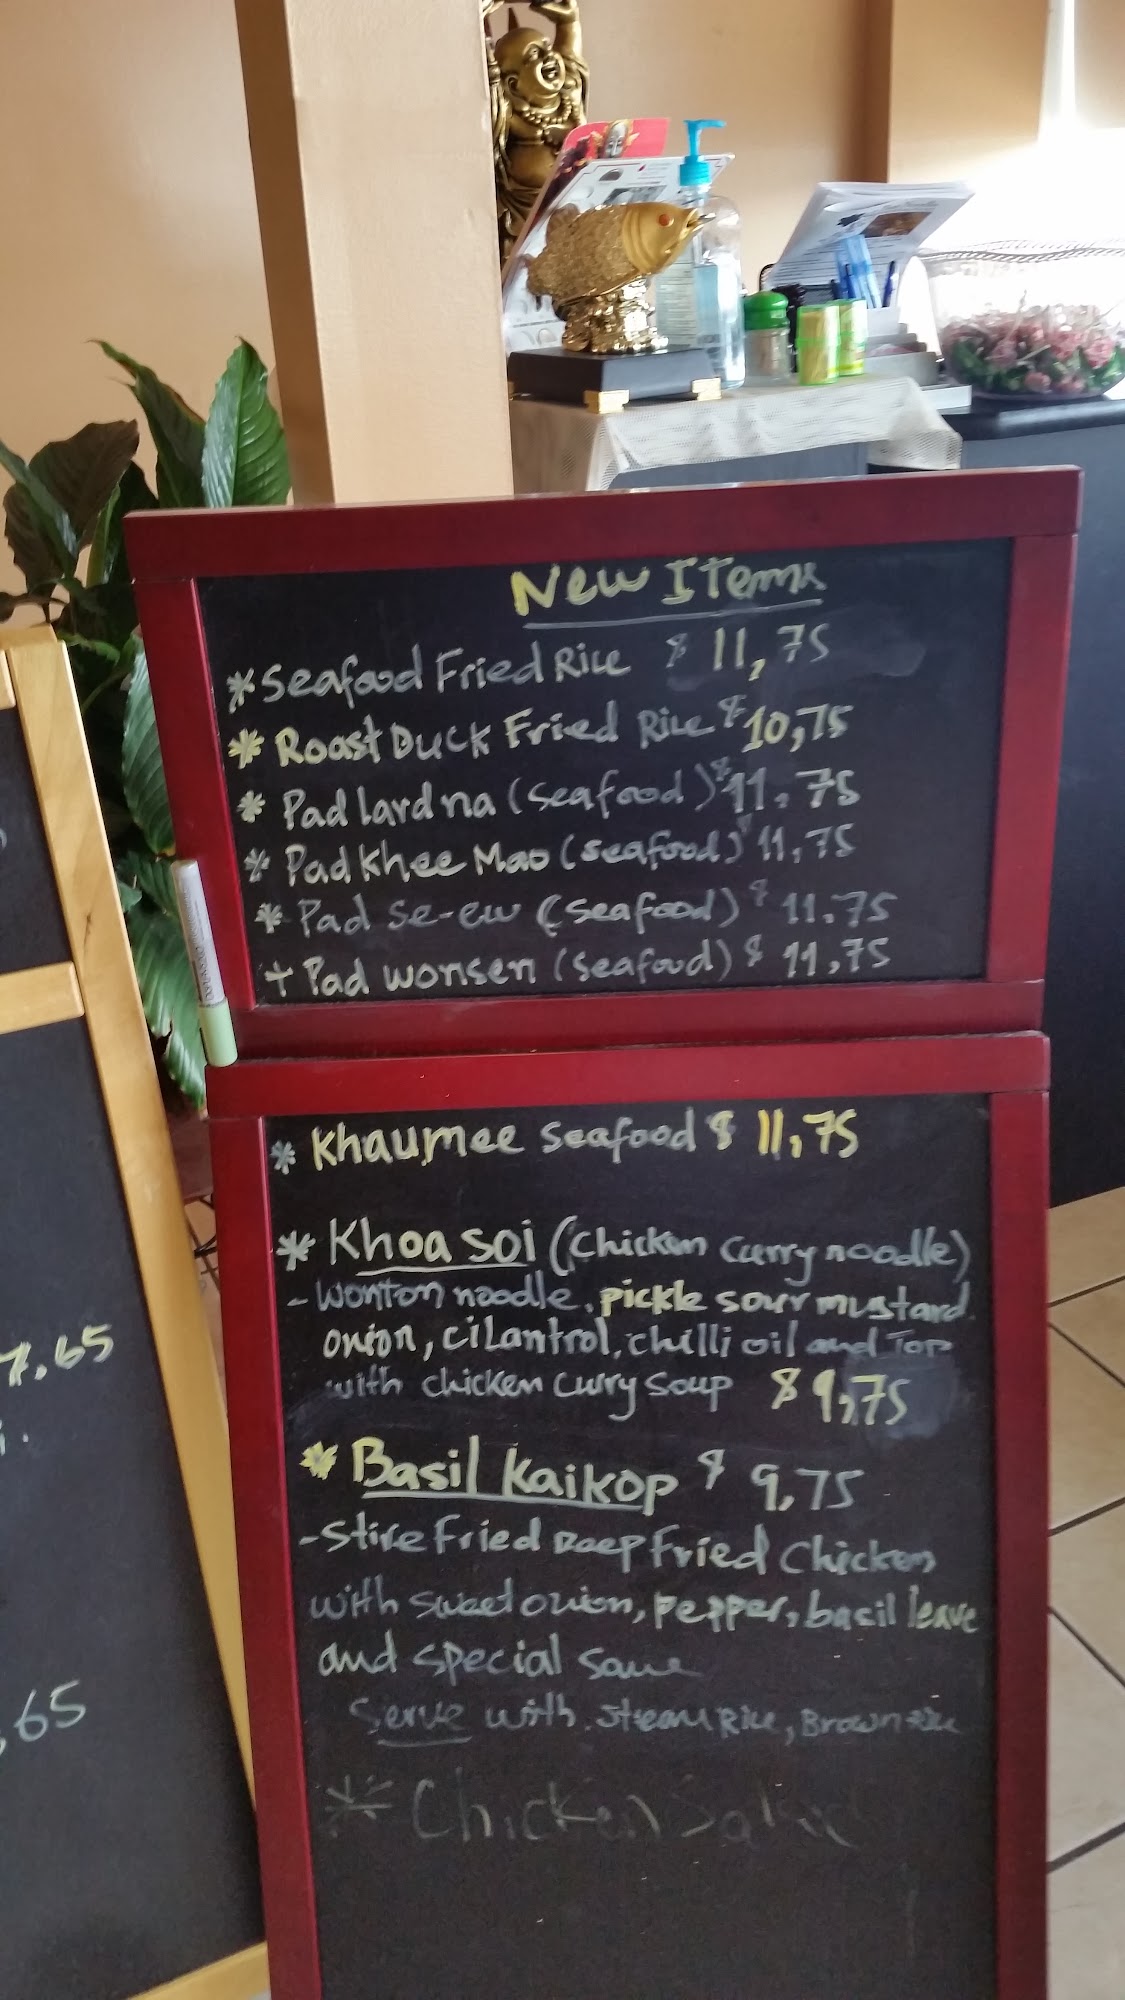 New Items
* Seafood Fried Rice $ 11,75
* Roast Duck Fried Rice $ 10,75
* Pad lard na (seafood) $ 11.75
* Pad Khee Mao (seafood) $ 11,75
* Pad se-ew (seafood) $ 11.75
+ Pad wonsen (seafood) $ 11,75
* Khaumee seafood $ 11,75
* Khoa soi (chicken curry noodle)
- wonton noodle, pickle sour mustard
onion, cilantrol, chilli oil and Top
with chicken curry soup $ 9,75
* Basil Kaikop $ 9,75
- Stire fried Deep fried chicken
with sweet onion, pepper, basil leave
and special sauce
Serve with steam Rice, Brown Rice
* Chicken Salad
7.65
.65